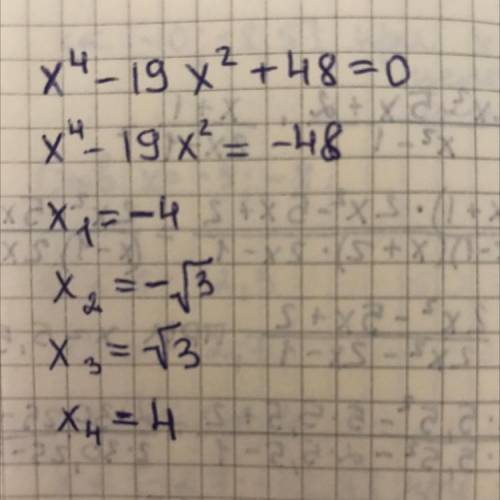 x⁴ - 19x² + 48 = 0
x⁴ - 19x² = -48
x₁ = -4
x₂ = -√3
x₃ = √3
x₄ = 4